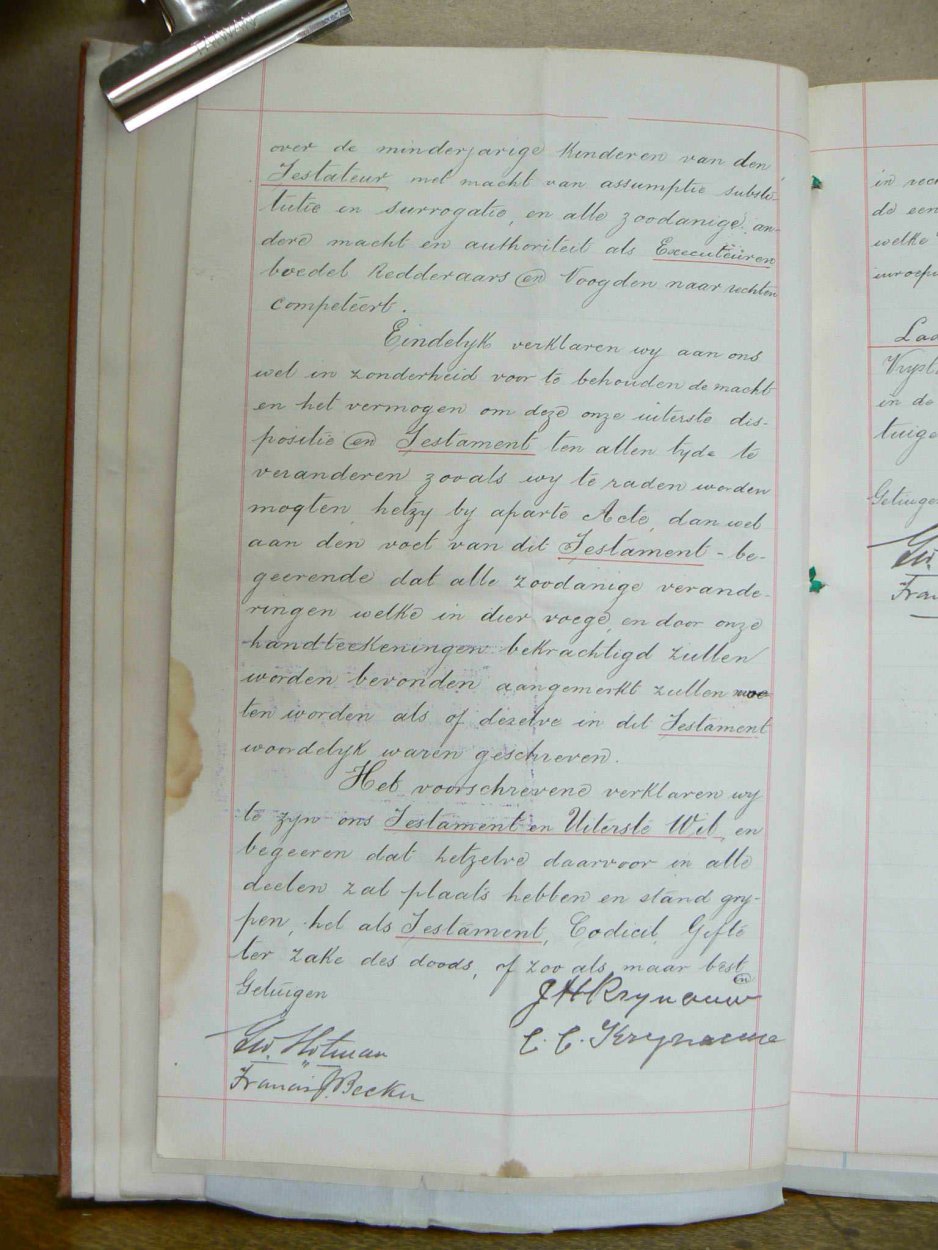 TAIWAN
over de minderjarige Kinderen van den
Testateur, met macht van assumptie substi-
tutie en surrogatie, en alle zoodanige an-
dere macht en authoriteit als Executeuren
boedel Redderaars en Voogden naar rechten
competeert.
Eindelyk verklaren wy aan ons
wel in zonderheid voor te behouden de macht
en het vermogen om deze onze uiterste dis-
positie en Testament ten allen tyde te
veranderen zooals wy te raden worden
mogten hetzy by aparte Acte, dan wel
aan den voet van dit Testament - be-
geerende dat alle zoodanige verande-
ringen welke in dier voege, en door onze
handteekeningen bekrachtigd zullen
worden bevonden aangemerkt zullen moe
ten worden als of dezelve in dit Testament
woordelyk waren geschreven.
Het voorschrevene verklaren wy
te zyn ons Testament en Uiterste Wil, en
begeeren dat hetzelve daarvoor in alle
deelen zal plaats hebben en stand gry-
pen, het als Testament, Codicil, Gifte
ter zake des doods, of zoo als maar best
en
Getuigen
J H Krynauw
C. C. Krynauw
Francis J. Becker
de een
welke
inroepe
in de
tuige
Getuigen
Fran